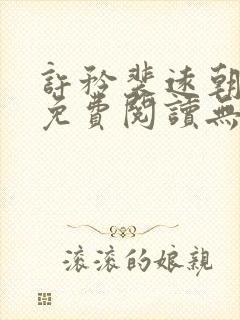 許矜裴速朝
免費閱讀無
滾滾的娘親